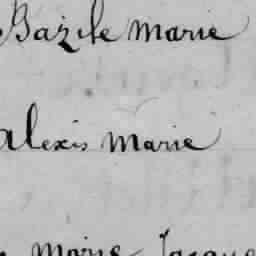 Bazile Marie
Alexis Marie
Marie Jacque